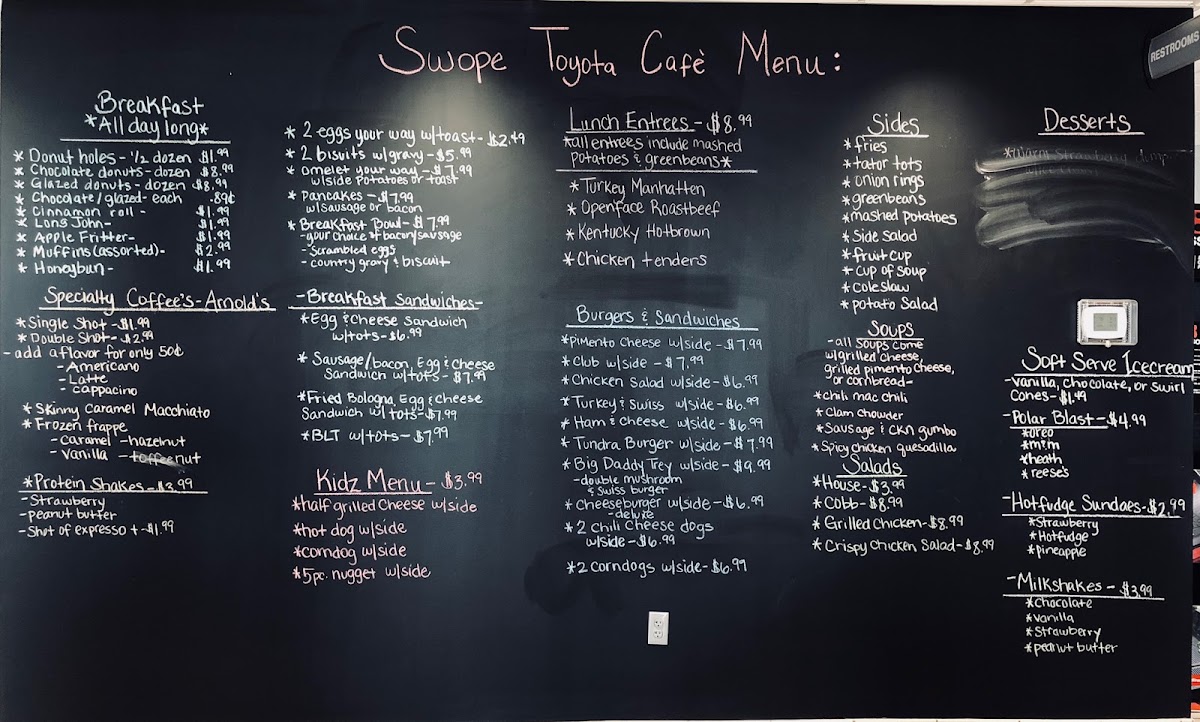 Swope Toyota Cafè Menu:
RESTROOMS
Breakfast
*All day long*
* Donut holes - 1/2 dozen $1.99
* Chocolate donuts - dozen $8.99
* Glazed donuts - dozen $8.99
* Chocolate/glazed - each .89¢
* Cinnamon roll - $1.99
* Long John - $1.99
* Apple Fritter - $1.99
* Muffins (assorted) - $2.99
* Honeybun - $1.99
Specialty Coffee's - Arnold's
* Single Shot - $1.99
* Double Shot - $2.99
- add a flavor for only 50¢
- Americano
- Latte
- cappacino
* Skinny Caramel Macchiato
* Frozen frappe
- caramel - hazelnut
- vanilla - toffeenut
* Protein Shakes - $3.99
- Strawberry
- peanut butter
- Shot of expresso + - $1.99
* 2 eggs your way w/toast - $2.49
* 2 bisuits w/gravy - $5.99
* omelet your way - $7.99
w/side potatoes or toast
* Pancakes - $7.99
w/sausage or bacon
* Breakfast Bowl - $7.99
- your choice of bacon/sausage
- scrambled eggs
- country gravy & biscuit
- Breakfast Sandwiches -
* Egg & Cheese Sandwich
w/tots - $6.99
* Sausage/bacon, Egg & Cheese
Sandwich w/tots - $7.99
* Fried Bologna, Egg & Cheese
Sandwich w/tots - $7.99
* BLT w/tots - $7.99
Kidz Menu - $3.99
* half grilled Cheese w/side
* hot dog w/side
* corndog w/side
* 5pc. nugget w/side
Lunch Entrees - $8.99
*all entrees include mashed
potatoes & greenbeans*
* Turkey Manhatten
* Openface Roastbeef
* Kentucky Hotbrown
* Chicken tenders
Burgers & Sandwiches
* Pimento Cheese w/side - $7.99
* Club w/side - $7.99
* Chicken Salad w/side - $6.99
* Turkey & Swiss w/side - $6.99
* Ham & cheese w/side - $6.99
* Tundra Burger w/side - $7.99
* Big Daddy Trey w/side - $9.99
- double mushroom
& Swiss burger
* Cheeseburger w/side - $6.99
- deluxe
* 2 Chili Cheese dogs
w/side - $6.99
* 2 corndogs w/side - $6.99
Sides
* fries
* tator tots
* onion rings
* greenbeans
* mashed potatoes
* side salad
* fruit cup
* cup of soup
* coleslaw
* potato salad
Soups
- all soups come
w/grilled cheese,
grilled pimento cheese,
or cornbread -
* chili mac chili
* Clam chowder
* Sausage & ckn gumbo
* Spicy chicken quesadilla
Salads
* House - $3.99
* Cobb - $8.99
* Grilled Chicken - $8.99
* Crispy Chicken Salad - $8.99
Desserts
Soft Serve Icecream
- vanilla, chocolate, or swirl
Cones - $1.49
- Polar Blast - $4.99
* oreo
* m&m
* heath
* reese's
- Hotfudge Sundaes - $2.99
* Strawberry
* Hotfudge
* pineapple
- Milkshakes - $3.99
* chocolate
* vanilla
* Strawberry
* peanut butter